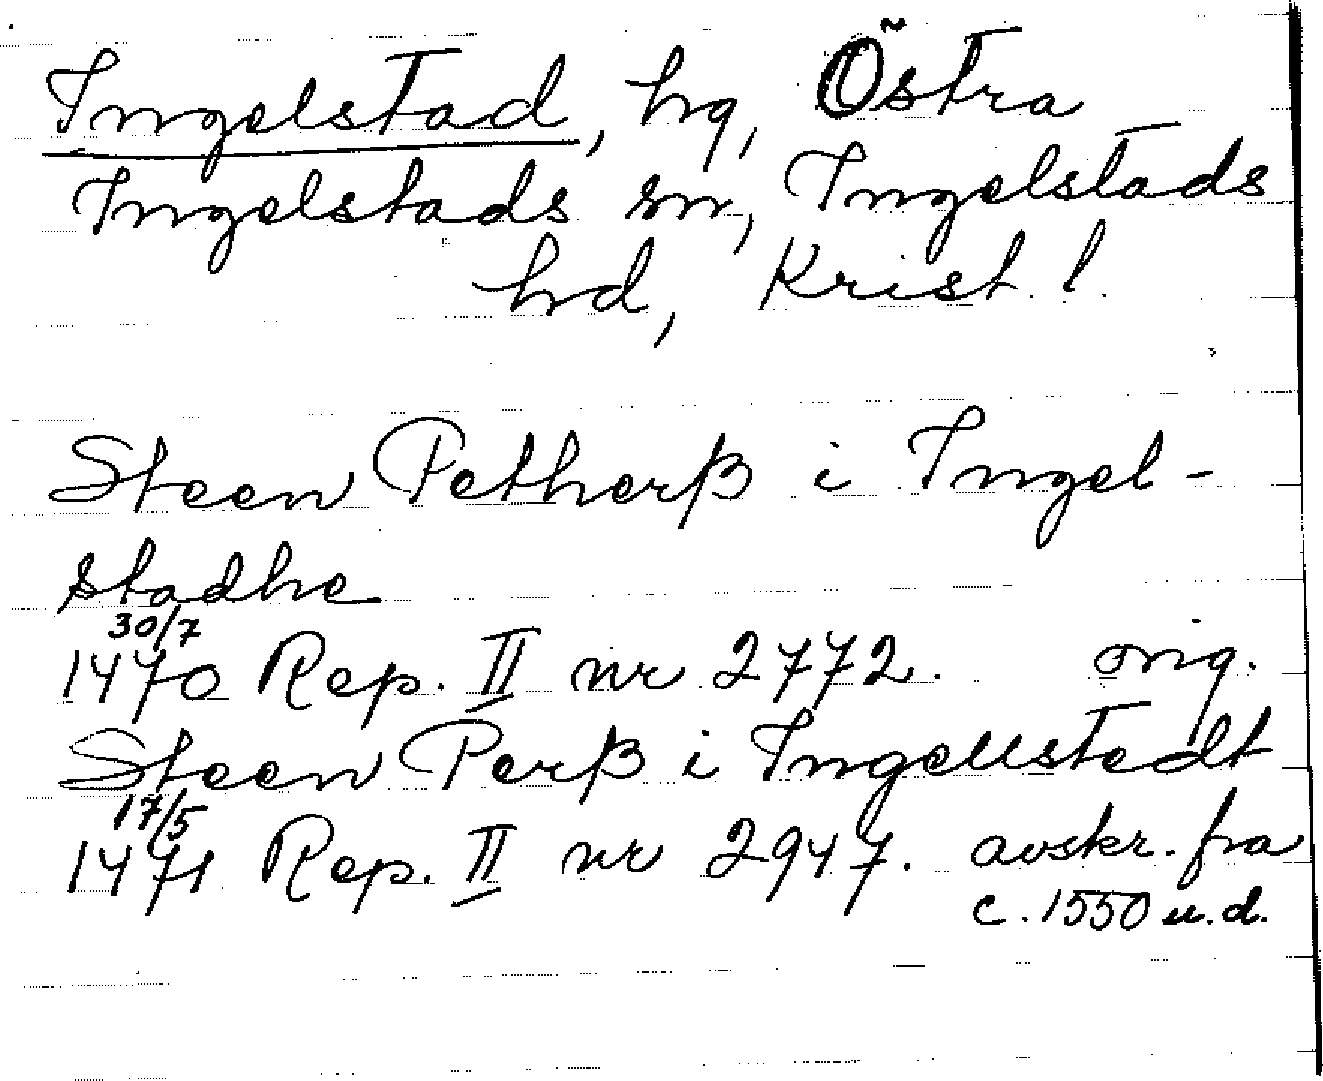 Ingelstad, hg, Östra
Ingelstads sn, Ingelstads
hd, Krist. l.
Steen Petherß i Ingel-
stadhe
30/7
1470 Rep. II nr 2772. orig.
Steen Perß i Ingellstedt
17/5
1471 Rep. II nr 2947. avskr. fra
c. 1550 u.d.